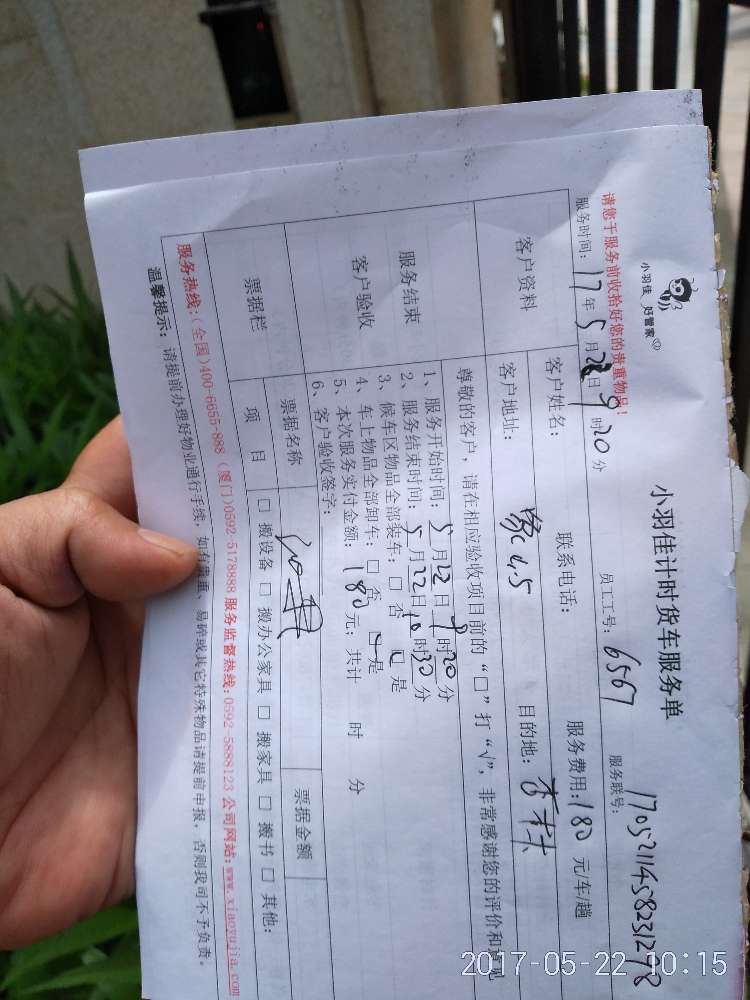 小羽佳 好管家
小羽佳计时货车服务单
请您于服务前收拾好您的贵重物品!
服务时间: 17年5月22日9时20分 员工工号: 6567 服务联号:
客户资料 客户姓名: 联系电话: 服务费用: 180 元/车/趟
客户地址: 目的地:
尊敬的客户, 请在相应验收项目前的“□”打“√”, 非常感谢您的评价和意见
服务结束
客户验收
1、服务开始时间: 5月22日9时20分
2、服务结束时间: 5月22日10时30分
3、候车区物品全部装车: □ 否 □ 是
4、车上物品全部卸车: □ 否 □ 是
5、本次服务实付金额: 180元; 共计 时 分
6、客户验收签字:
票据栏 票据名称 票据金额
项目 □ 搬设备 □ 搬办公家具 □ 搬家具 □ 搬书 □ 其他:
服务热线:(全国)400-6655-888 (厦门)0592-5178888 服务监督热线:0592-5888123 公司网站:www.xiaoyujia.com
温馨提示: 请提前办理好物业通行手续, 如有贵重、易碎或其它特殊物品请提前申报, 否则我司不予负责。
2017-05-22 10:15